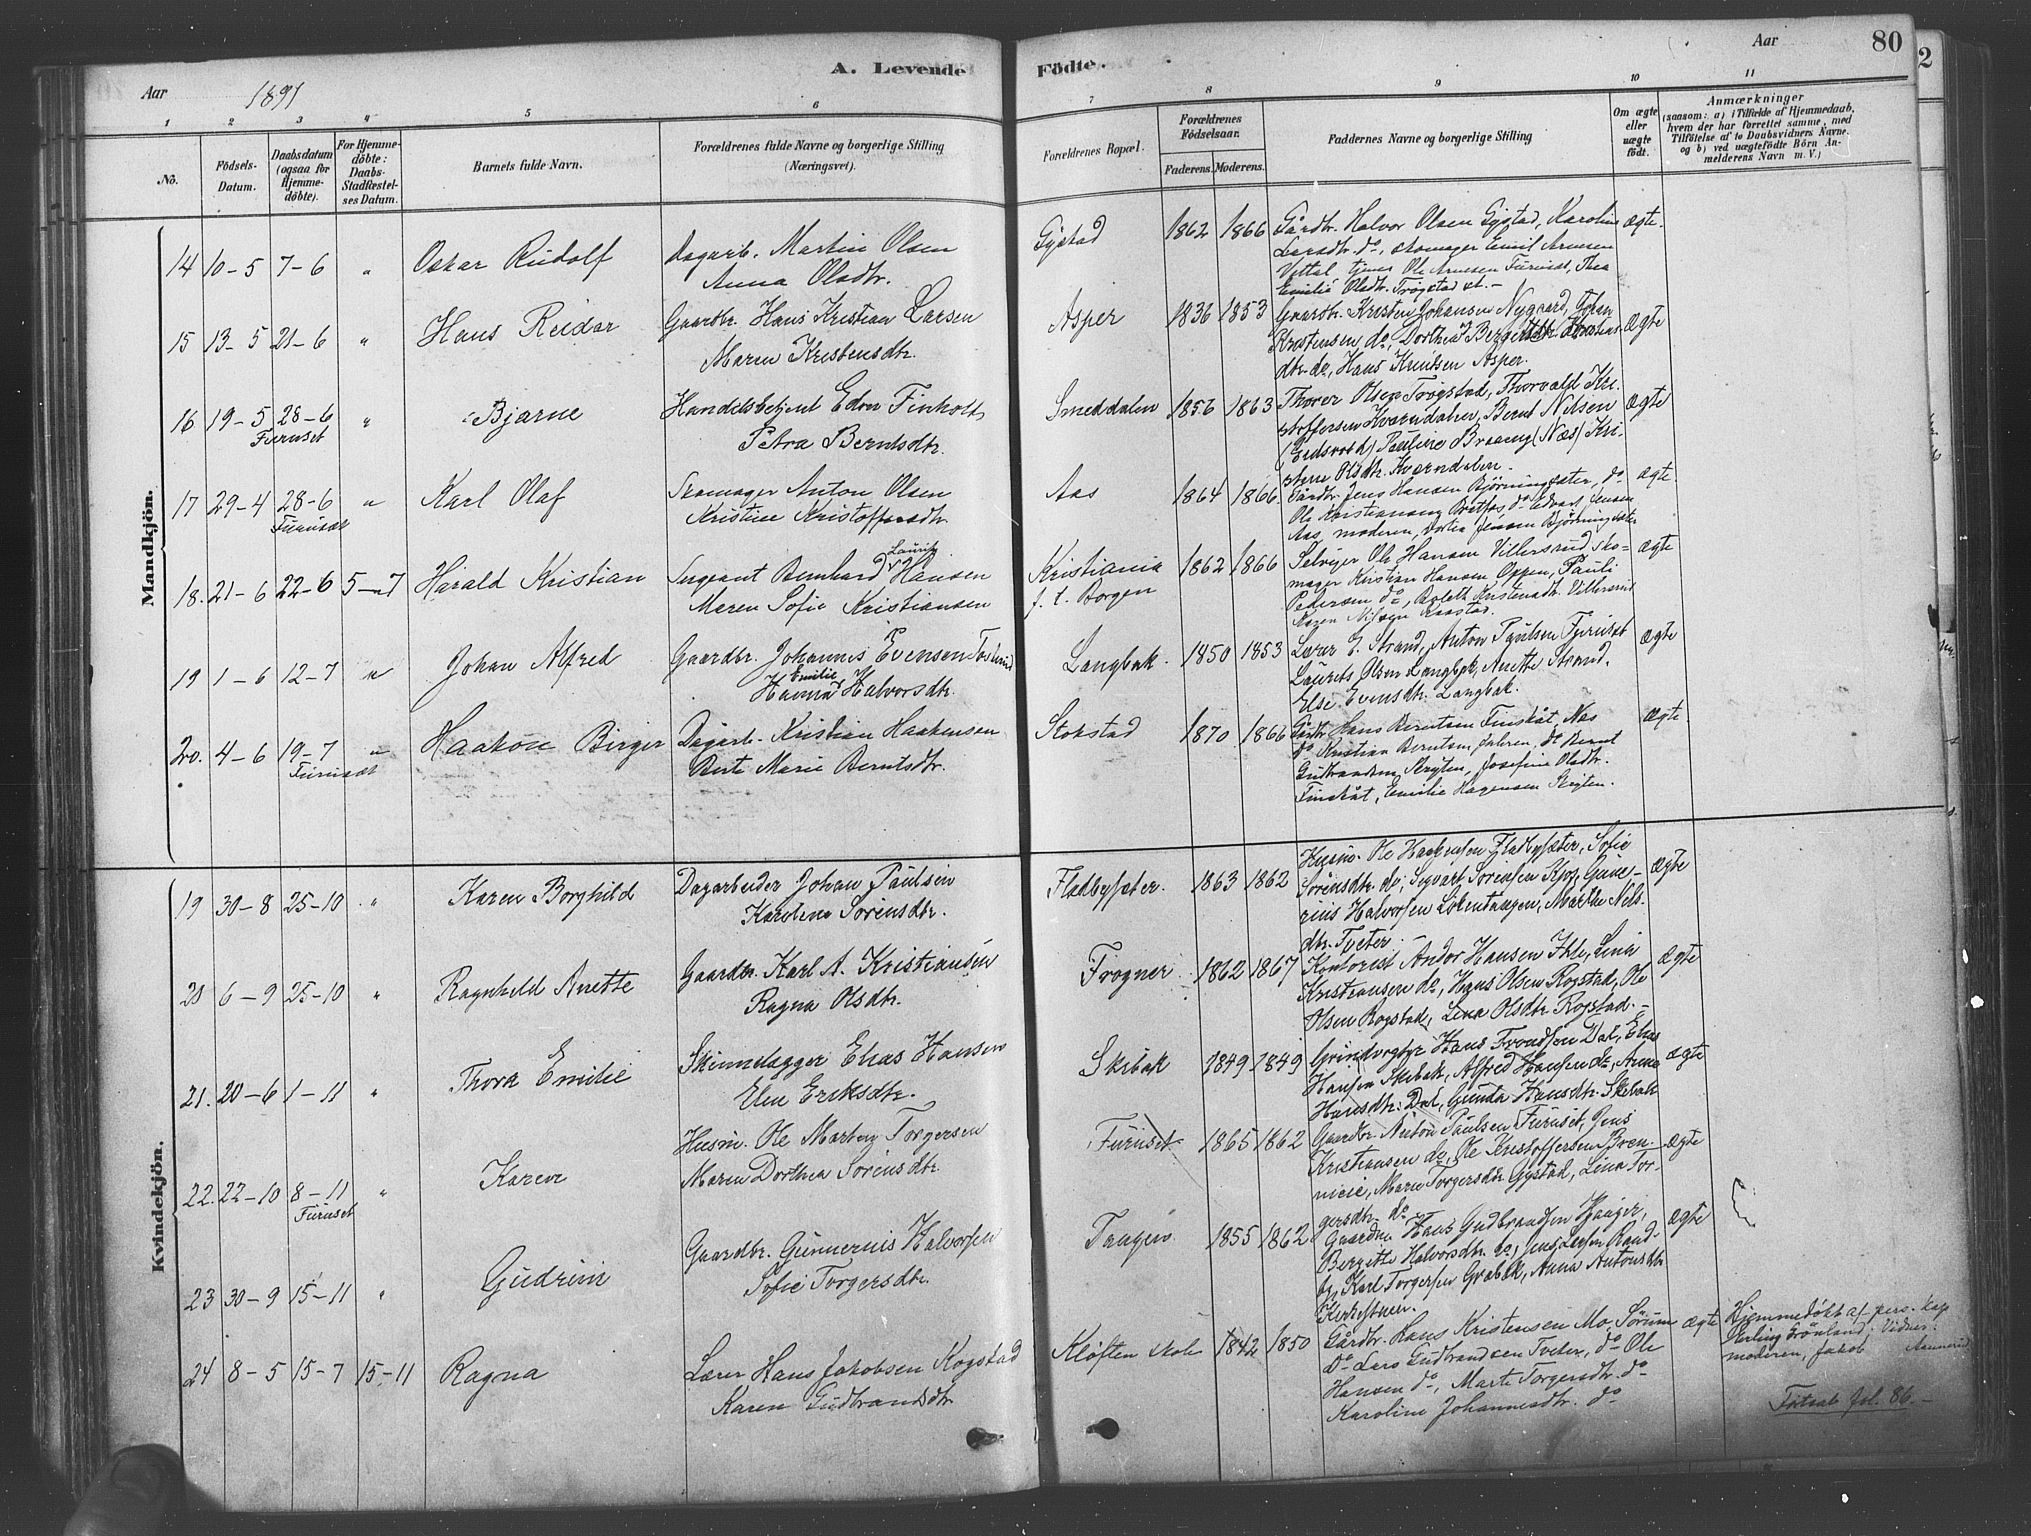 Aar 1891
A. Levende Födte.
Aar
80
2
1 2 3 4 5 6 7 8 9 10 11
No.
Födsels-Datum.
Daabsdatum (ogsaa for Hjemme-döbte).
For Hjemme-döbte: Daabs-Stadfæstel-ses Datum.
Barnets fulde Navn.
Forældrenes fulde Navne og borgerlige Stilling (Næringsvei).
Forældrenes Bopæl.
Forældrenes Födselsaar.
Faderens. Moderens.
Faddernes Navne og borgerlige Stilling
Om ægte eller uægte födt.
Anmærkninger
(saasom: a) i Tilfælde af Hjemmedaab, hvem der har forrettet samme, med Tilföielse af to Daabsvidners Navne, og b) ved uægtefödte Börn Anmelderens Navn m. V.)
Mandkjön.
14 10-5 7-6 " Oskar Rudolf
Dagarb. Martin Olsen
Anna Olsdtr.
Gystad 1862 1866
Gårdbr. Halvor Olsen Gystad, Karoline
Larsdtr. do, skomager Emil Arnesen
tjener Ole Arnesen Furuset, Thea
Emilie Olsdtr. Trøgstad
ægte.
15 13-5 21-6 " Hans Reidar
Gaardbr. Hans Kristian Larsen
Maren Kristensdtr.
Asper 1836 1853
Gaardbr. Kristen Johansen Nygaard, Johan
Kristensen do, Dorthea
dtr. do, Hans Knutsen Asper.
ægte
16 19-5 28-6 Furuset " Bjarne
Handelsbetjent Edvr Finholdt
Petra Berntsdtr.
Smeddalen 1856 1863
Thorer Olsen Trøgstad, Thorvald Kri-
stoffersen Kværndalen, Bernt Nilsen
(Eidsvold) Pauline Braang (Næs) Kri-
stine Olsdtr. Kværndalen.
ægte
17 29-4 28-6 Furuset " Karl Olaf
Skomager Anton Olsen
Kristine Kristoffersdtr.
Aas 1864 1866
Gårdbr. Jens Hansen Bjørningsæter, do
Ole Kristiansen do Edvart Jensen
Aas, moderen, Dortea Jensen Bjørningsæter
ægte.
18. 21-6 22-6 5-7 Harald Kristian
Sergeant Bernhard Laurits Hansen
Maren Sofie Kristiansen
Kristiania
f. t. Borgen 1862 1866
Selveier Ole Hansen Villersrud sko-
mager Kristian Hansen Oppen, Pauli
Pedersen do, Bolett Kristensdtr. Villersrud
Karen Nilsen
ægte
19 1-6 12-7 " Johan Alfred
Gaardbr. Johannes Evensen
Hanna Emilie Halvorsdtr.
Langbak. 1850 1853
Lærer E. Strand, Anton Paulsen Furuset
Laurits Olsen Langbak, Anette Strand,
Else Evensdtr. Langbak.
ægte
20. 4-6 19-7 Furuset " Haakon Birger
Dagarb. Kristian Haakensen
Berte Marie Berntsdtr.
Stokstad 1870 1866
Gårdbr. Hans Berntsen Finskåt, Næs
do Kristian Berntsen Jahren, do Bernt
Gudbrandsen Skryten, Josefine Olsdtr.
Finskåt, Emilie Hagensen Skryten.
ægte
Kvindekjön.
19 30-8 25-10 " Karen Borghild
Dagarbeider Johan Paulsen
Karoline Sørensdtr.
Fladbysæter. 1863 1862
Husm. Ole Haagensen Fladbysæter, Sofie
Sørensdtr. do, Sigvart Sørensen Kjos, Gune-
rius Halvorsen Løkentangen, Marthe Nils-
dtr. Tveter.
ægte
20 6-9 25-10 " Ragnhild Anette
Gaardbr. Karl A. Kristiansen
Ragna Olsdtr.
Frogner 1862 1867
Kontorist Andor Hansen Ihle, Lina
Kristiansen do, Hans Olsen Rogstad, Ole
Olsen Rogstad, Lina Olsdtr. Rogstad.
ægte
21. 20-6 1-11 " Thora Emilie
Skinnelægger Elias Hansen
Elen Eriksdtr.
Skibak 1849 1849
Hans Trondsen Dal, Elias
Hansen Skibak, Alfred Hansen do, Anna
Hansdtr. Dal, Gunda Hansdtr. Skibak
ægte
22. 22-10 8-11 Furuset " Karen
Husm. Ole Marberg Torgersen
Maren Dorthea Sørensdtr.
Furuset 1865 1862
Gaardbr. Anton Paulsen Furuset, Jens
Kristiansen do, Ole Kristoffersen Bren-
nieie, Marie Torgersdtr. Gystad, Lina Tor-
gersdtr. do
ægte
23 30-9 15-11 " Gudrun
Gaardbr. Gunnerius Halvorsen
Sofie Torgersdtr.
Tangen 1855 1862
Gaardbr. Hans Gudbrandsen Hauger,
Bergitte Halvorsdtr. do, Jens Larsen Rand-
by, Karl Torgersen Grøbak, Anna Antonsdtr.
ægte
24 8-5 15-7 15-11 Ragna
Lærer Hans Jakobsen Kogstad
Karen Gudbrandsdtr.
Kløften skole 1842 1850
Gårdbr. Hans Kristensen Mo, Sørum
do Lars Gudbrandsen Tveter, do Ole
Hansen do, Marte Torgersdtr. do
Karoline Johannesdtr. do
ægte
Hjemmedøbt af pers. kap.
Erling Grønland. Vidner:
moderen, Jakob
Fortsat fol. 86.